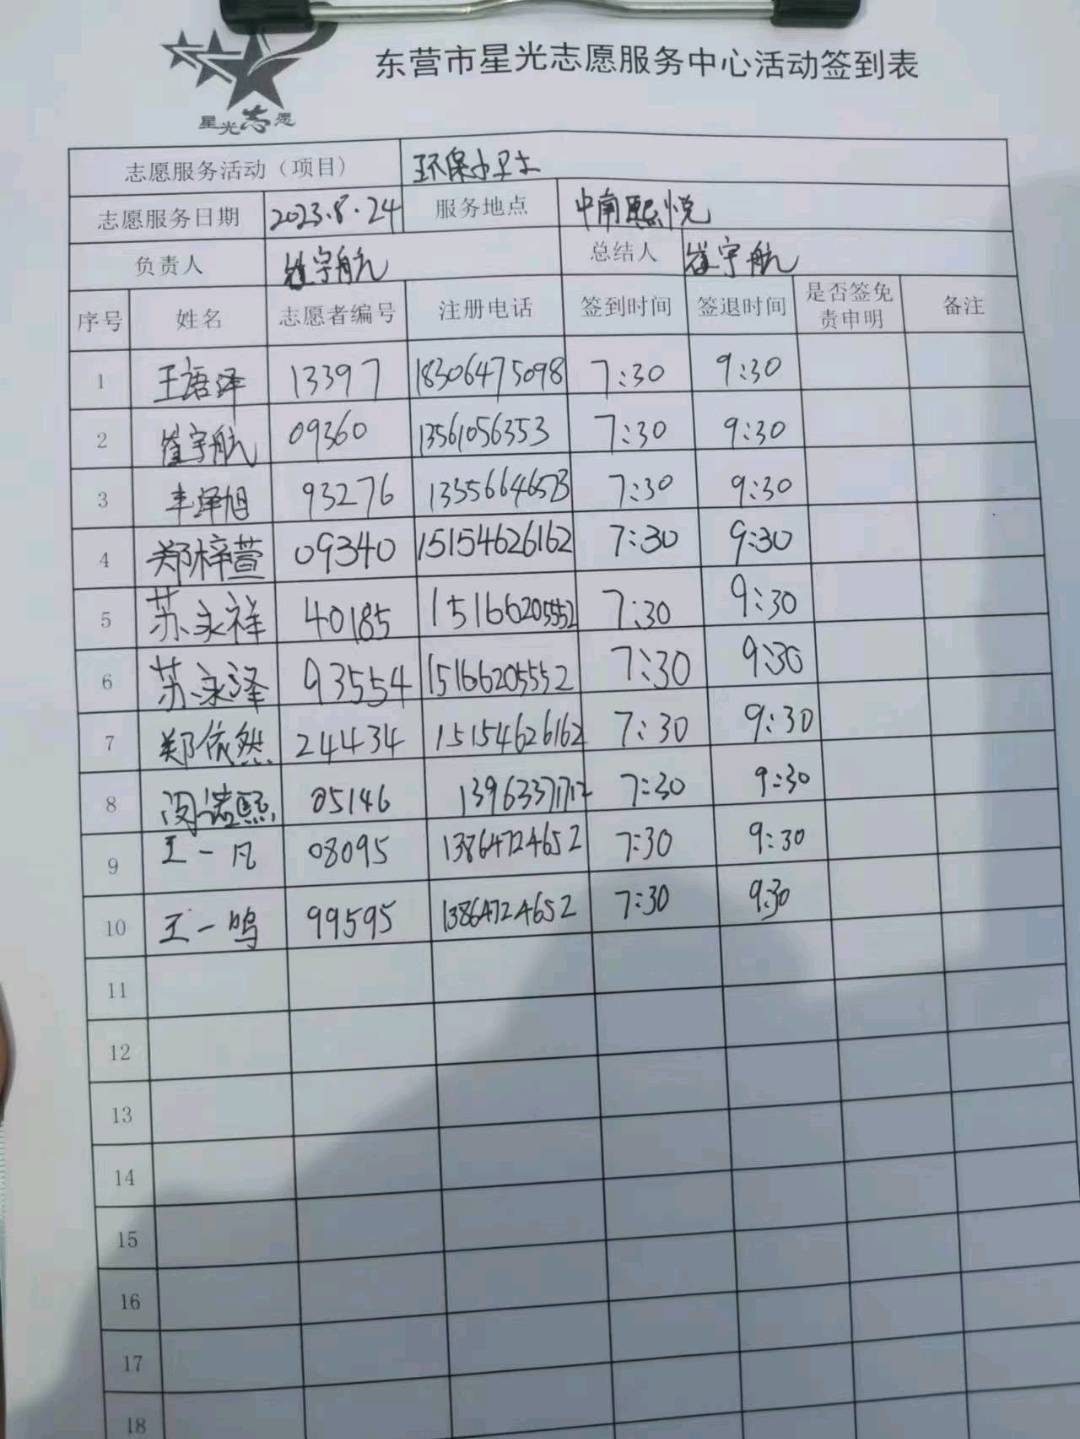 东营市星光志愿服务中心活动签到表
星光志愿
志愿服务活动（项目） 环保小卫士
志愿服务日期 2023.8.24 服务地点 中南熙悦
负责人 崔宇航 总结人 崔宇航
序号 姓名 志愿者编号 注册电话 签到时间 签退时间 是否签免责申明 备注
1 王语泽 13397 18306475098 7:30 9:30
2 崔宇航 09360 13561056353 7:30 9:30
3 丰泽旭 93276 7:30 9:30
4 郑梓萱 09340 15154626162 7:30 9:30
5 苏永祥 40185 15166205552 7:30 9:30
6 苏永泽 93554 15166205552 7:30 9:30
7 郑依然 24434 15154626162 7:30 9:30
8 闵诺熙 05146 7:30 9:30
9 王一凡 08095 13864724652 7:30 9:30
10 王一鸣 99595 13864724652 7:30 9:30
11
12
13
14
15
16
17
18